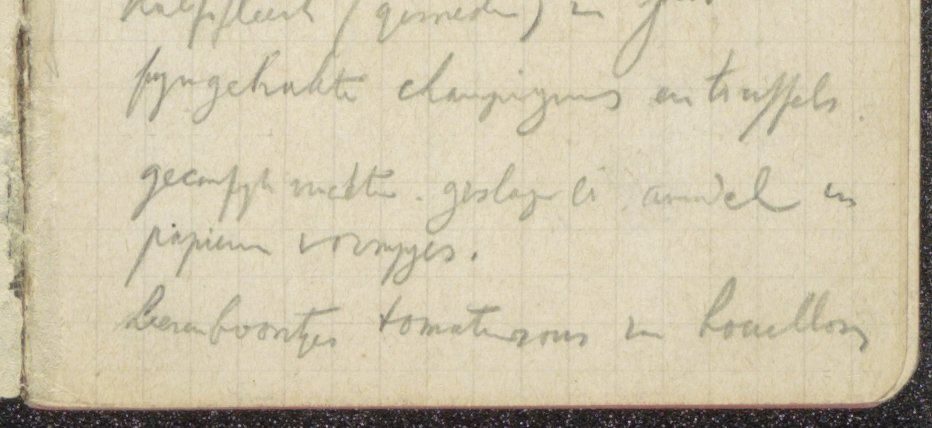 kalfsvleesch (gesneden) in
fyngehakte champignons en truffels.
geconfyte geslagen ei amandel in
papieren vormpjes.
boontjes tomatensaus en bouillon